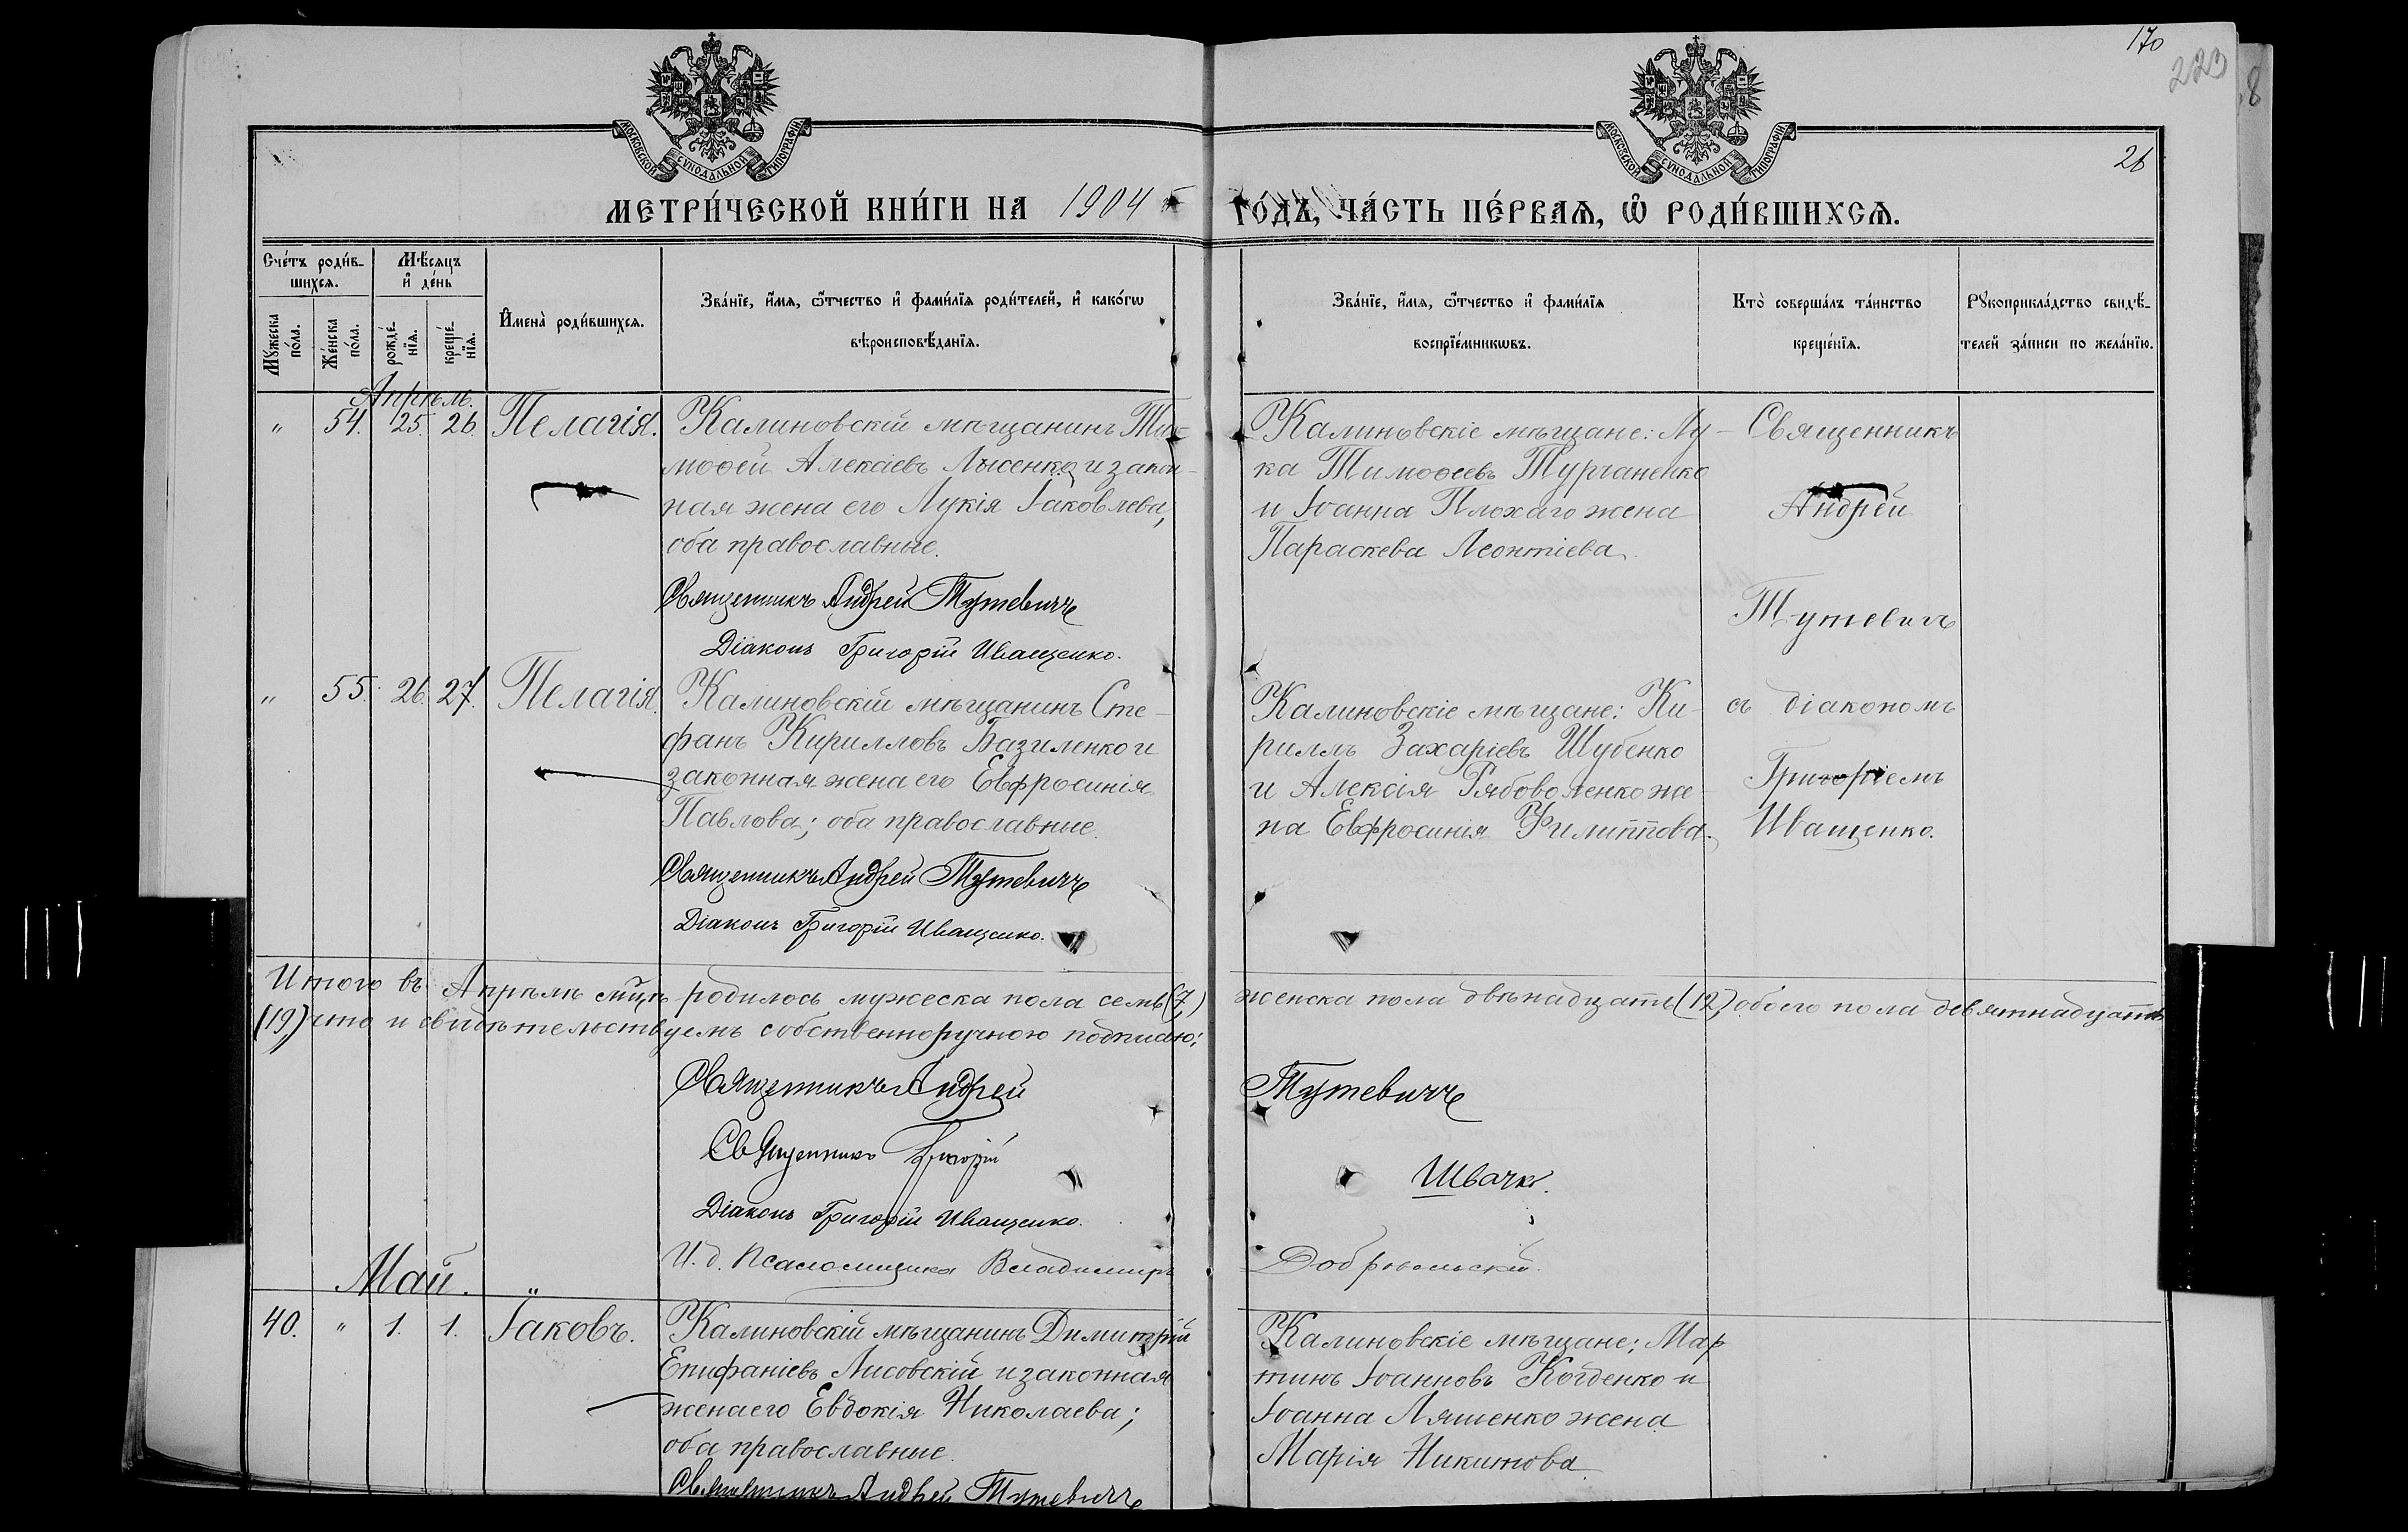 170
223
8
26
МОСКОВСКОЙ СУНОДАЛЬНОЙ ТИПОГРАФІИ
МОСКОВСКОЙ СУНОДАЛЬНОЙ ТИПОГРАФІИ
МЕТРИ́ЧЕСКОЙ КНИ́ГИ НА 1904 ГОДЪ, ЧА́СТЬ ПЕ́РВАѦ, Ѿ РОДИ́ВШИХСѦ.
Сче́тъ роди́в-
шихсѧ.
Мѣ́сѧцъ
и҆ де́нь
Мꙋ́жеска
по́ла.
Же́нска
по́ла.
рожде́-
нїѧ.
креще́-
нїѧ.
И҆мена̀ роди́вшихсѧ.
Зва́нїе, и҆́мѧ, ѻ҆́тчество и҆ фами́лїѧ роди́телей, и҆ како́гѡ
вѣроисповѣ́данїѧ.
Зва́нїе, и҆́мѧ, ѻ҆́тчество и҆ фами́лїѧ
воспрїе́мникѡвъ.
Кто̀ соверша́лъ та́инство
креще́нїѧ.
Рꙋкоприкла́дство свидѣ́-
телей за́писи по жела́нїю.
Апрѣль.
" 54. 25. 26. Пелагія. Калиновскій мѣщанинъ Ти-
моѳей Алексіевъ Лысенко и закон-
ная жена его Лукія Іаковлева,
оба православные.
Священникъ Андрей Тутевичъ
Діаконъ Григорій Иващенко.
Калиновскіе мѣщане: Лу-
ка Тимоѳеевъ Турганенко
и Іоанна Плохаго жена
Параскева Леонтіева.
Священникъ
Андрей
Тутевичъ
" 55. 26. 27. Пелагія. Калиновскій мѣщанинъ Сте-
фанъ Кирилловъ Базиленко и
законная жена его Евфросинія
Павлова; оба православные.
Священникъ Андрей Тутевичъ
Діаконъ Григорій Иващенко.
Калиновскіе мѣщане: Ки-
риллъ Захаріевъ Шубенко
и Алексія Рябоволенко же-
на Евфросинія Филиппова.
съ діакономъ
Григоріемъ
Иващенко.
Итого въ Апрѣлѣ мѣцѣ родилось мужеска пола семь (7) женска пола двѣнадцать (12) обоего пола девятнадцать
(19) что и свидѣтельствуемъ собственноручною подписью:
Священникъ Андрей Тутевичъ
Священникъ Григорій Швачко.
Діаконъ Григорій Иващенко.
И. д. Псаломщика Владимиръ Добровольскій.
Май. "
40. " 1. 1. Іаковъ. Калиновскій мѣщанинъ Димитрій
Епифаніевъ Лисовскій и законная
жена его Евдокія Николаева;
оба православные.
Священникъ Андрей Тутевичъ
Калиновскіе мѣщане: Мар
тинъ Іоанновъ Когденко и
Іоанна Ляшенко жена
Марія Никитова.